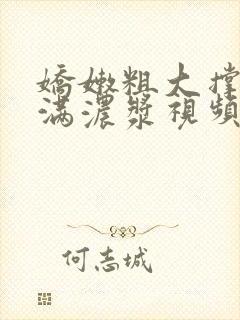 嬌嫩粗大撐
滿濃漿視頻
何志城